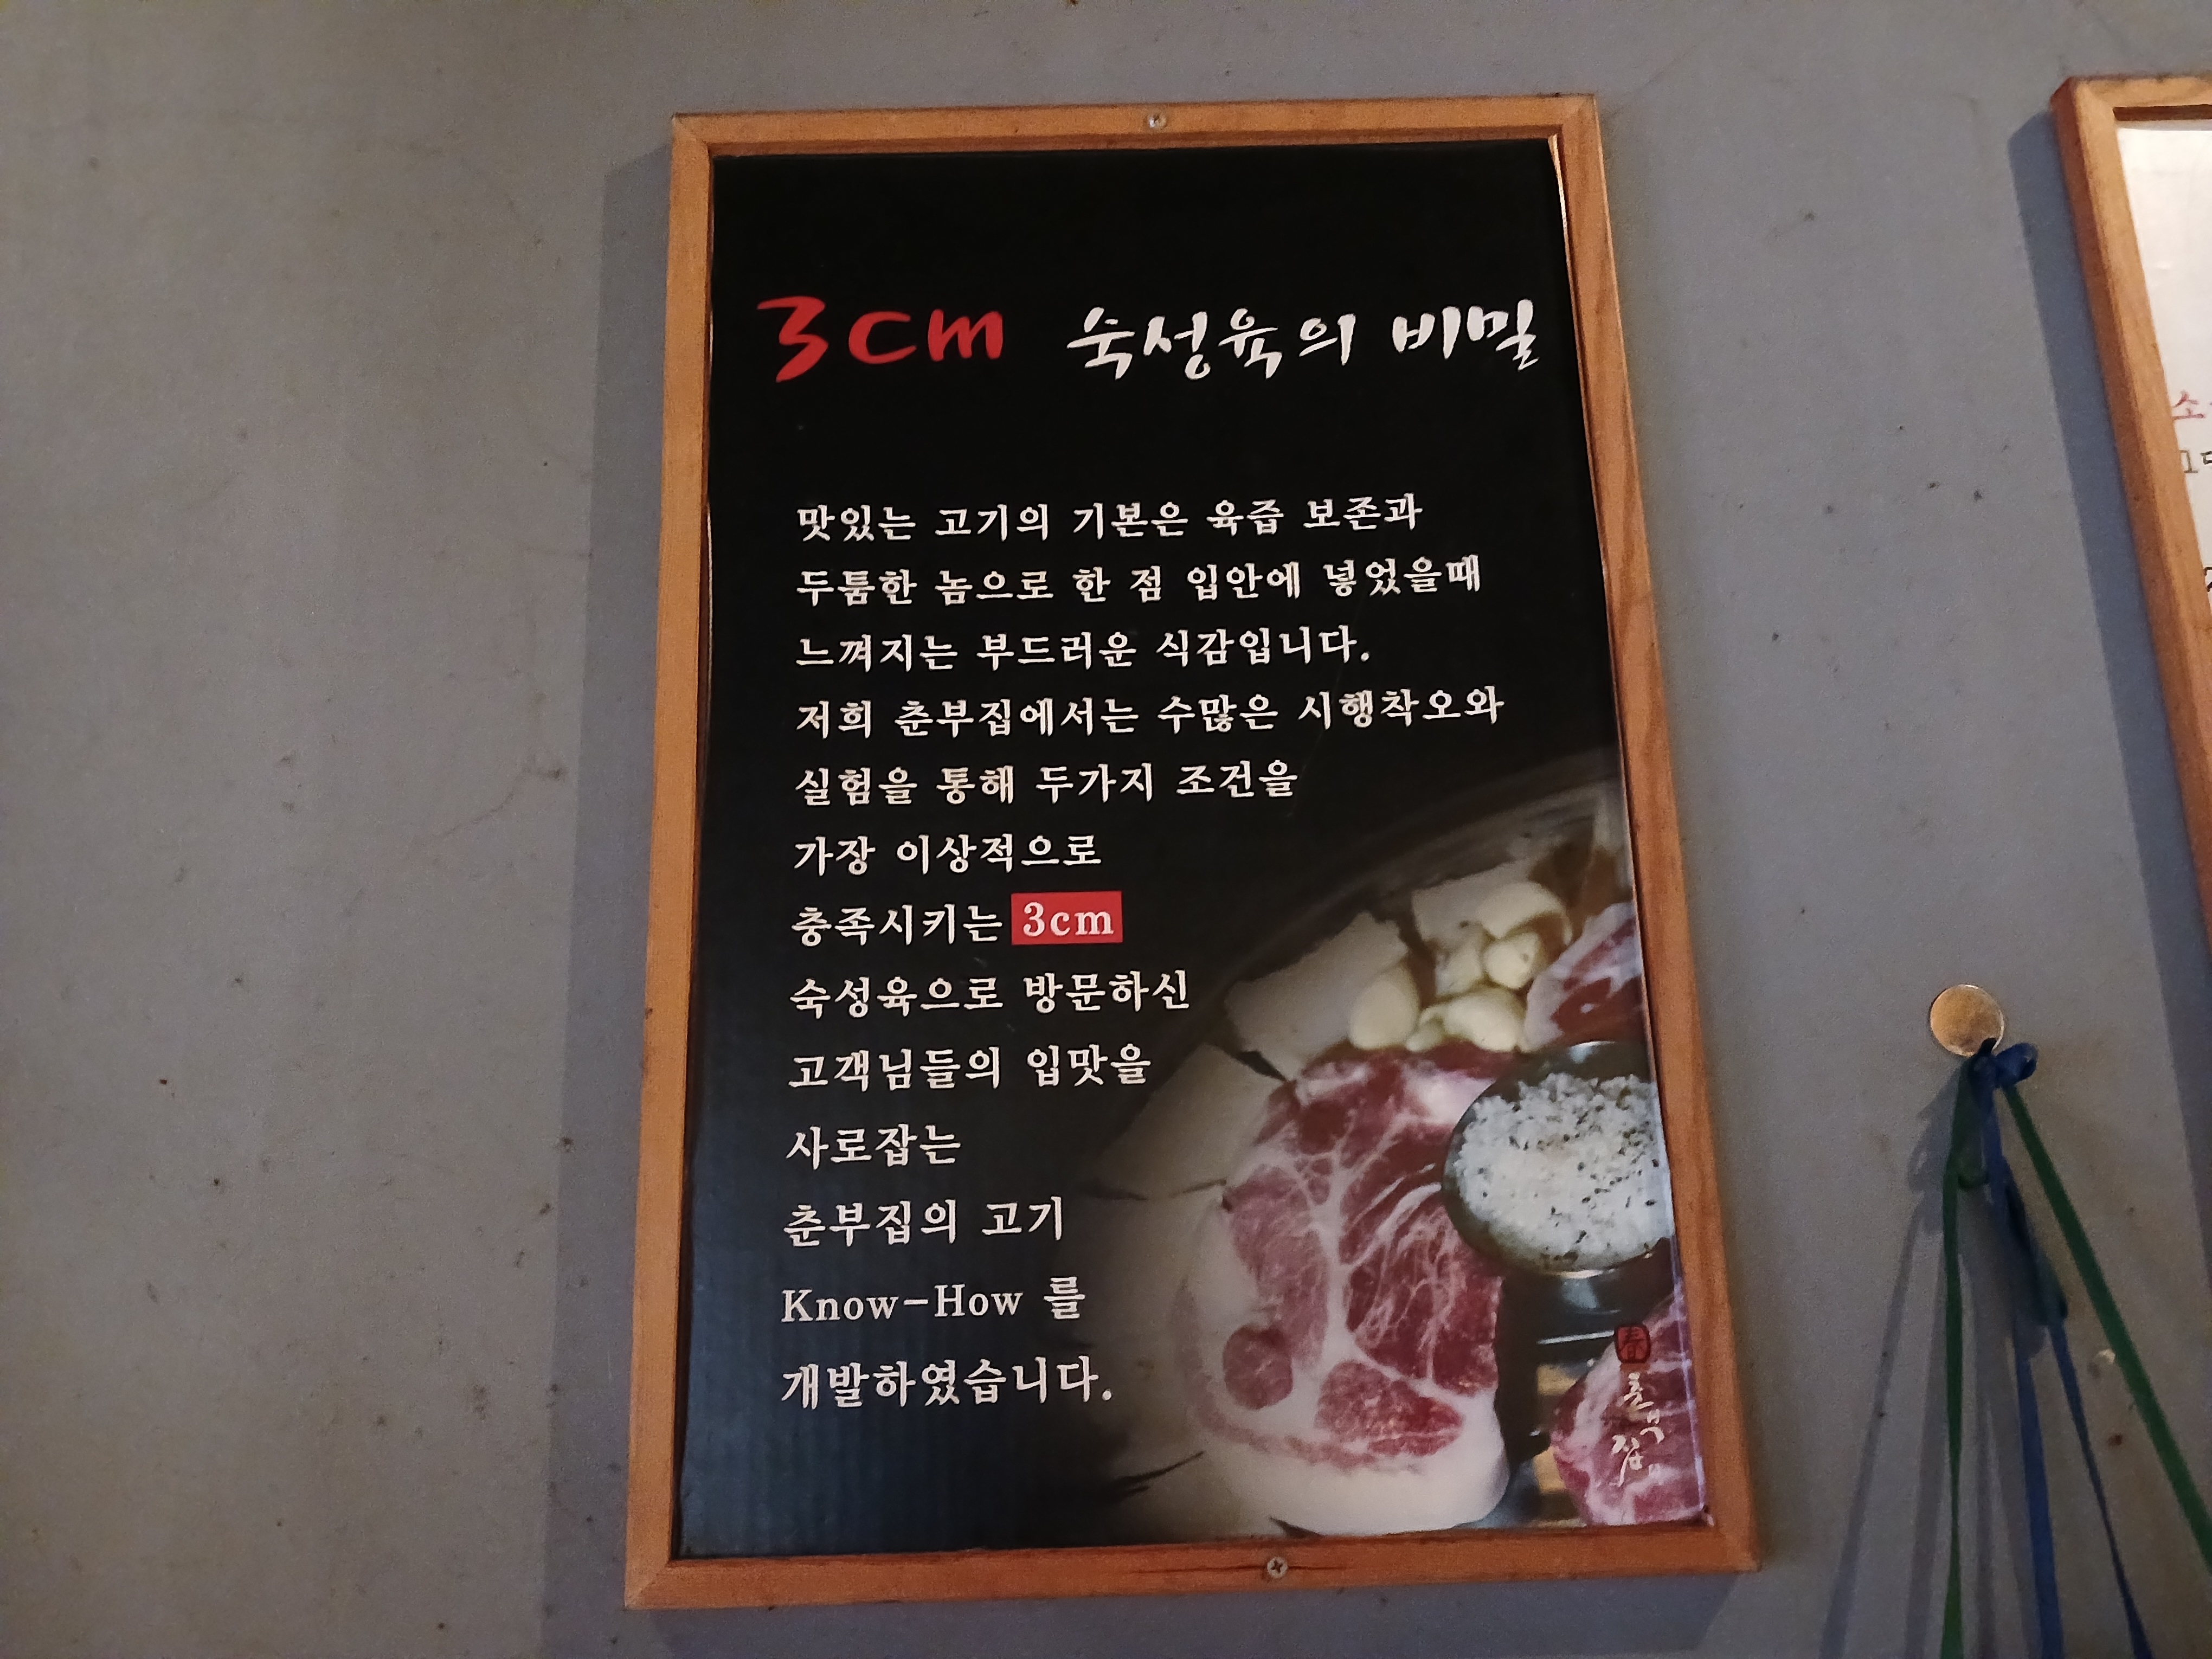 3cm 숙성육의 비밀
맛있는 고기의 기본은 육즙 보존과
두툼한 놈으로 한 점 입안에 넣었을때
느껴지는 부드러운 식감입니다.
저희 춘부집에서는 수많은 시행착오와
실험을 통해 두가지 조건을
가장 이상적으로
충족시키는 3cm
숙성육으로 방문하신
고객님들의 입맛을
사로잡는
춘부집의 고기
Know-How 를
개발하였습니다.
春
춘부집